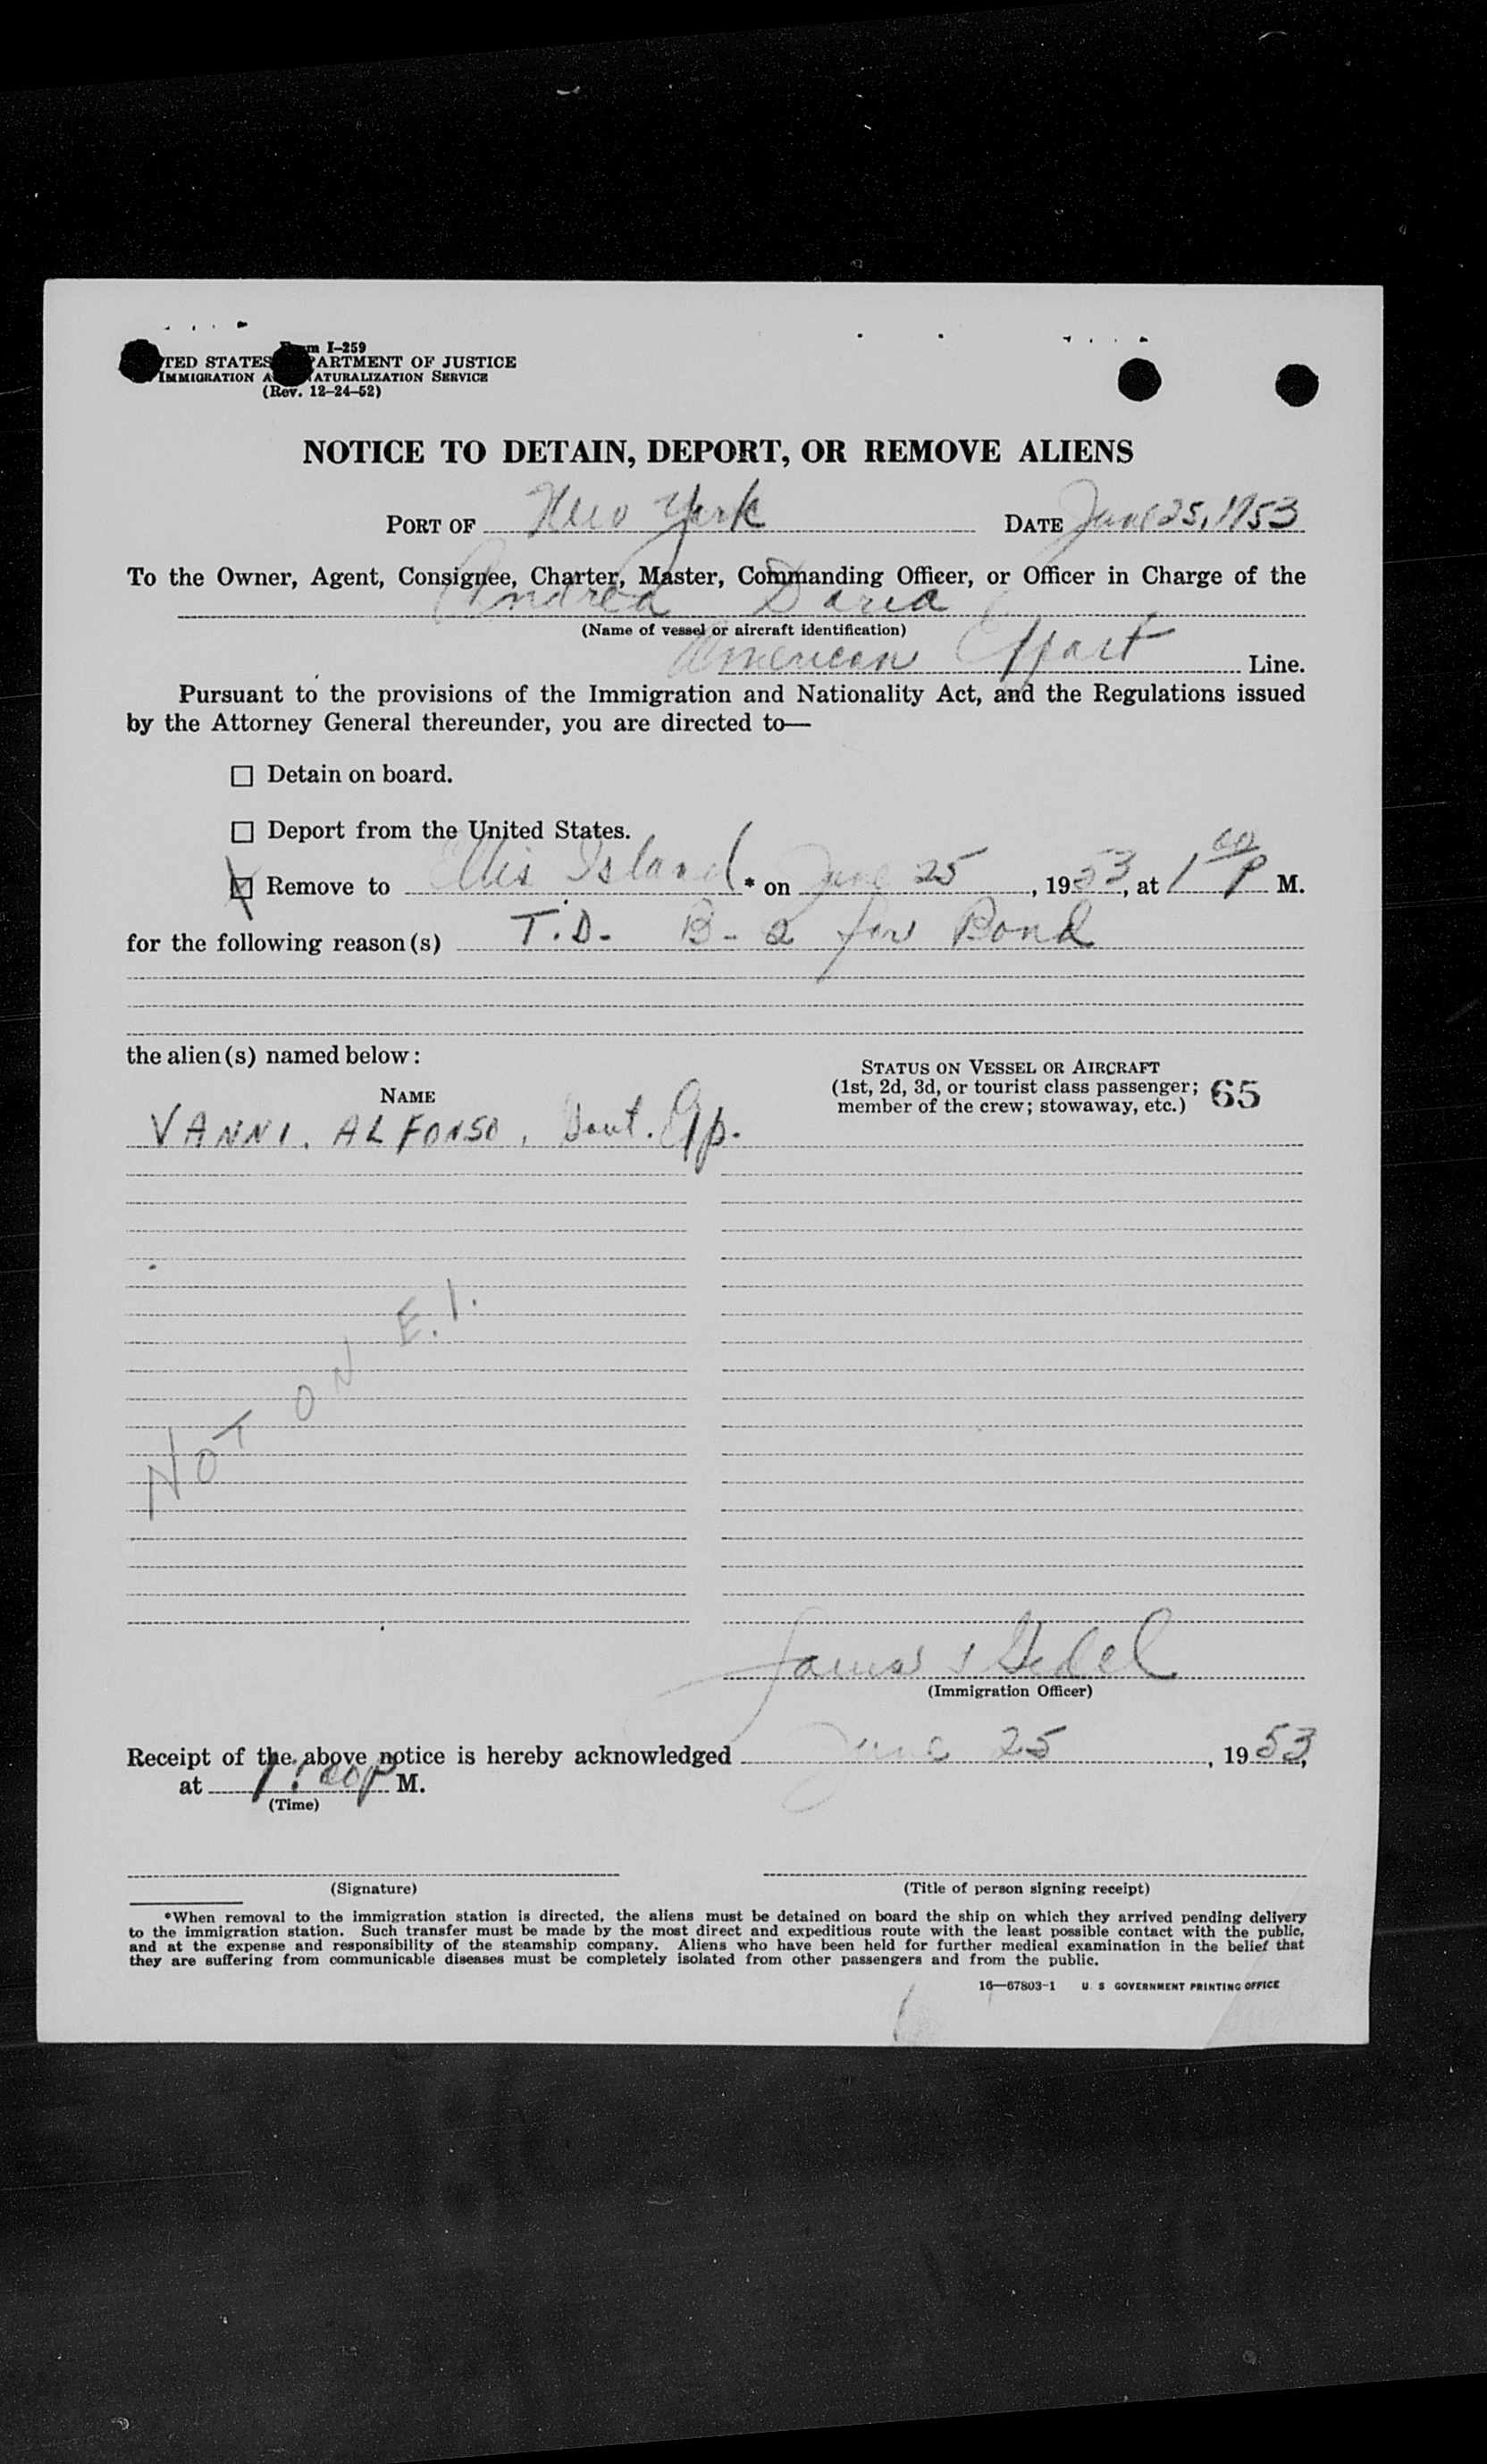 Form I-259
UNITED STATES DEPARTMENT OF JUSTICE
IMMIGRATION AND NATURALIZATION SERVICE
(Rev. 12-24-52)
NOTICE TO DETAIN, DEPORT, OR REMOVE ALIENS
PORT OF New York DATE June 25, 1953
To the Owner, Agent, Consignee, Charter, Master, Commanding Officer, or Officer in Charge of the
Andrea Doria
(Name of vessel or aircraft identification)
American Line.
Pursuant to the provisions of the Immigration and Nationality Act, and the Regulations issued
by the Attorney General thereunder, you are directed to—
☐ Detain on board.
☐ Deport from the United States.
☒ Remove to Ellis Island * on June 25, 1953, at 1 00 P M.
for the following reason(s) T.D. B-2 for Bond
the alien(s) named below:
STATUS ON VESSEL OR AIRCRAFT
(1st, 2d, 3d, or tourist class passenger;
member of the crew; stowaway, etc.) 65
NAME
VANNI, ALFONSO,
NOT ON E.I.
James
(Immigration Officer)
Receipt of the above notice is hereby acknowledged June 25, 1953,
at 1:00 p M.
(Time)
(Signature) (Title of person signing receipt)
*When removal to the immigration station is directed, the aliens must be detained on board the ship on which they arrived pending delivery
to the immigration station. Such transfer must be made by the most direct and expeditious route with the least possible contact with the public,
and at the expense and responsibility of the steamship company. Aliens who have been held for further medical examination in the belief that
they are suffering from communicable diseases must be completely isolated from other passengers and from the public.
16—67803-1 U. S GOVERNMENT PRINTING OFFICE